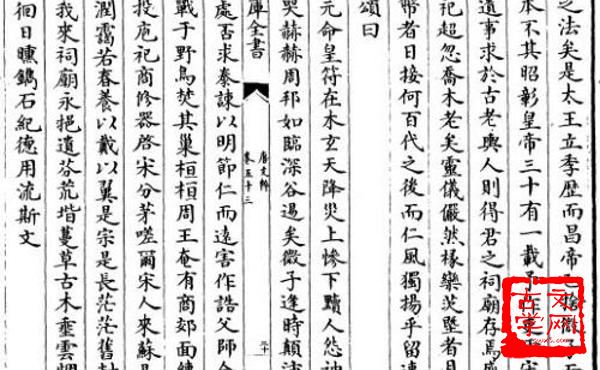 之法矣是太王立季歷而昌帝乙捨微子
本不其昭彰皇帝三十有一載予作吏
遺事求於古老輿人則得君之祠廟存焉
祀超忽喬木老矣靈儀儼然椽欒茨墍者
幣者日接何百代之後而仁風獨揚乎留連
頌曰
元命皇符在木玄天降災上慘下黷人怨神
哭赫赫周邦如臨深谷遏矣微子逢時顛沛
庫全書
唐文粹
卷五十三
三十
處否求奉諫以明節仁而遠害作誥父師
戰于野鳥焚其巢桓桓周王奄有商郊面縛
投庖祀商修器啓宋分茅嗟爾宋人來蘇是
潤霑若春養以戴以翼是宗是長茫茫舊封
我來祠廟永挹遺芬荒堦蔓草古木垂雲惆
徊日曛鐫石紀德用流斯文
古文学网